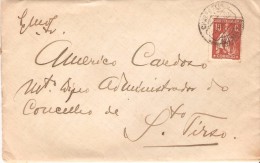 Exmo. Sr.
Americo Cardoso
Mto. Digno Administrador do
Concelho de
Sto. Tirso.
10 C